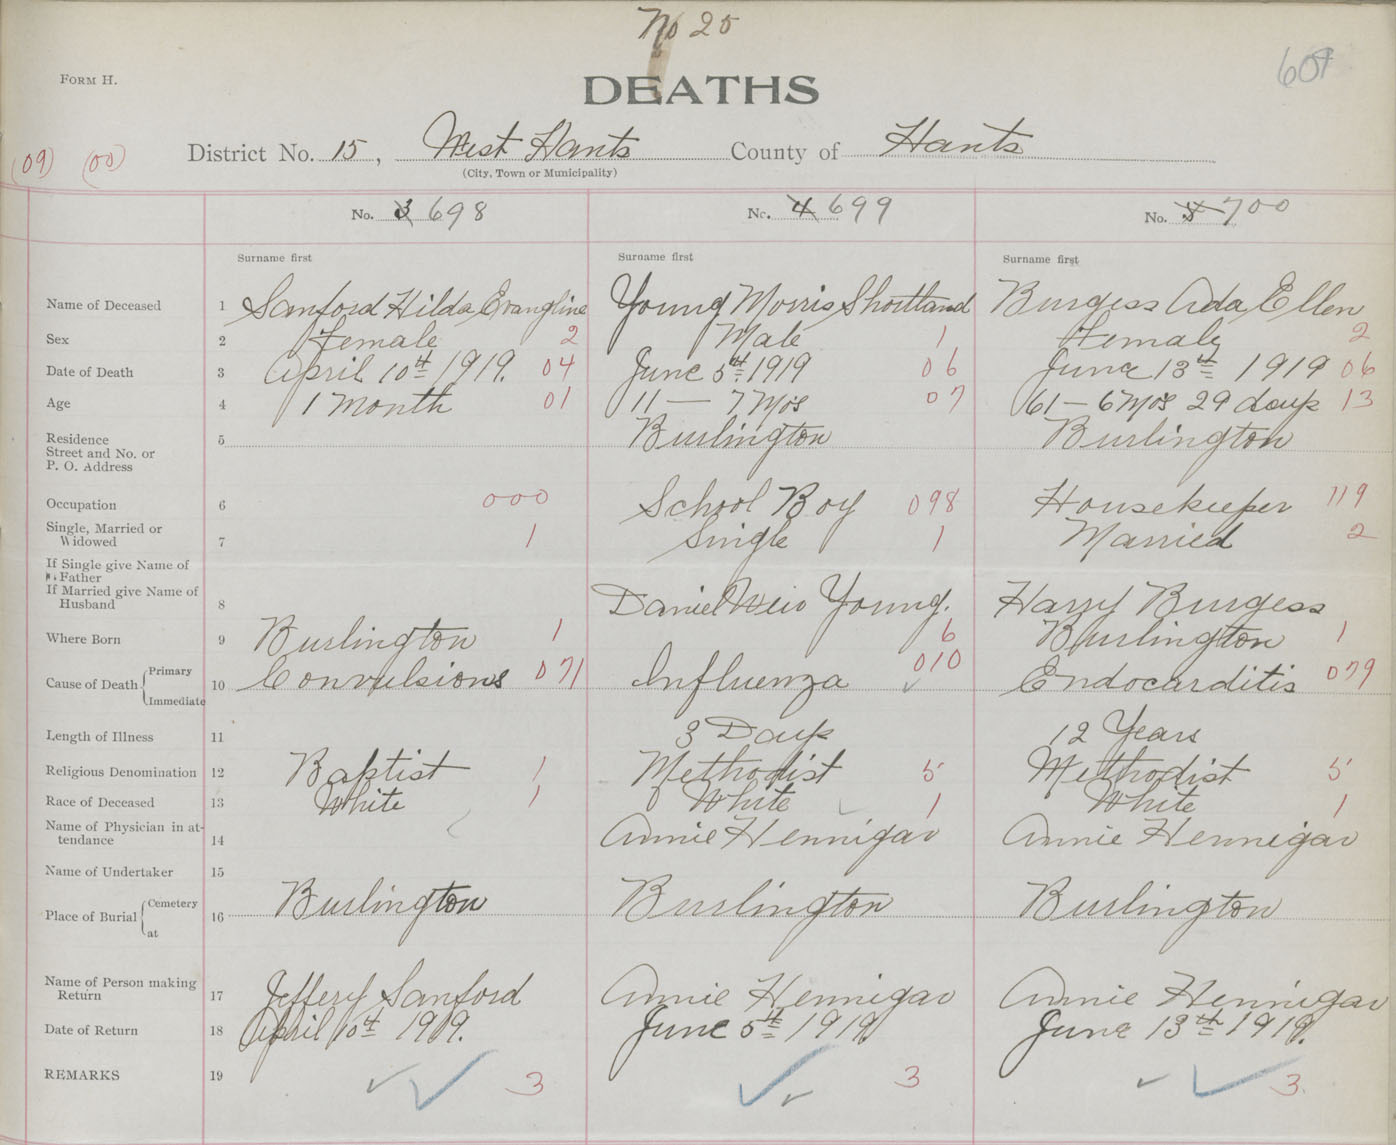 No 25
607
FORM H.
DEATHS
(09) (00) District No. 15, West Hants County of Hants
(City, Town or Municipality)
No. 3 698 No. 4 699 No. 5 700
Surname first Surname first Surname first
Name of Deceased 1 Sanford Hilda Evangline Young Morris Shortland Burgess Ada Ellen
Sex 2 Female 2 Male 1 Female 2
Date of Death 3 April 10th 1919. 04 June 5th 1919 06 June 13th 1919 06
Age 4 1 Month 01 11 — 7 Mos 07 61 — 6 Mos 29 days 13
Residence 5 Burlington Burlington
Street and No. or
P. O. Address
Occupation 6 000 School Boy 098 Housekeeper 119
Single, Married or
Widowed 7 1 Single 1 Married 2
If Single give Name of
Father
If Married give Name of
Husband 8 Daniel Weir Young. Harry Burgess
Where Born 9 Burlington 1 6 Burlington 1
Cause of Death Primary
Immediate 10 Convulsions 071 Influenza 010 Endocarditis 079
Length of Illness 11 3 Days 12 Years
Religious Denomination 12 Baptist 1 Methodist 5 Methodist 5
Race of Deceased 13 White 1 White 1 White 1
Name of Physician in at-
tendance 14 Annie Hennigar Annie Hennigar
Name of Undertaker 15
Place of Burial Cemetery
at 16 Burlington Burlington Burlington
Name of Person making
Return 17 Jeffery Sanford Annie Hennigar Annie Hennigar
Date of Return 18 April 10th 1919. June 5th 1919. June 13th 1919.
REMARKS 19 3 3 3